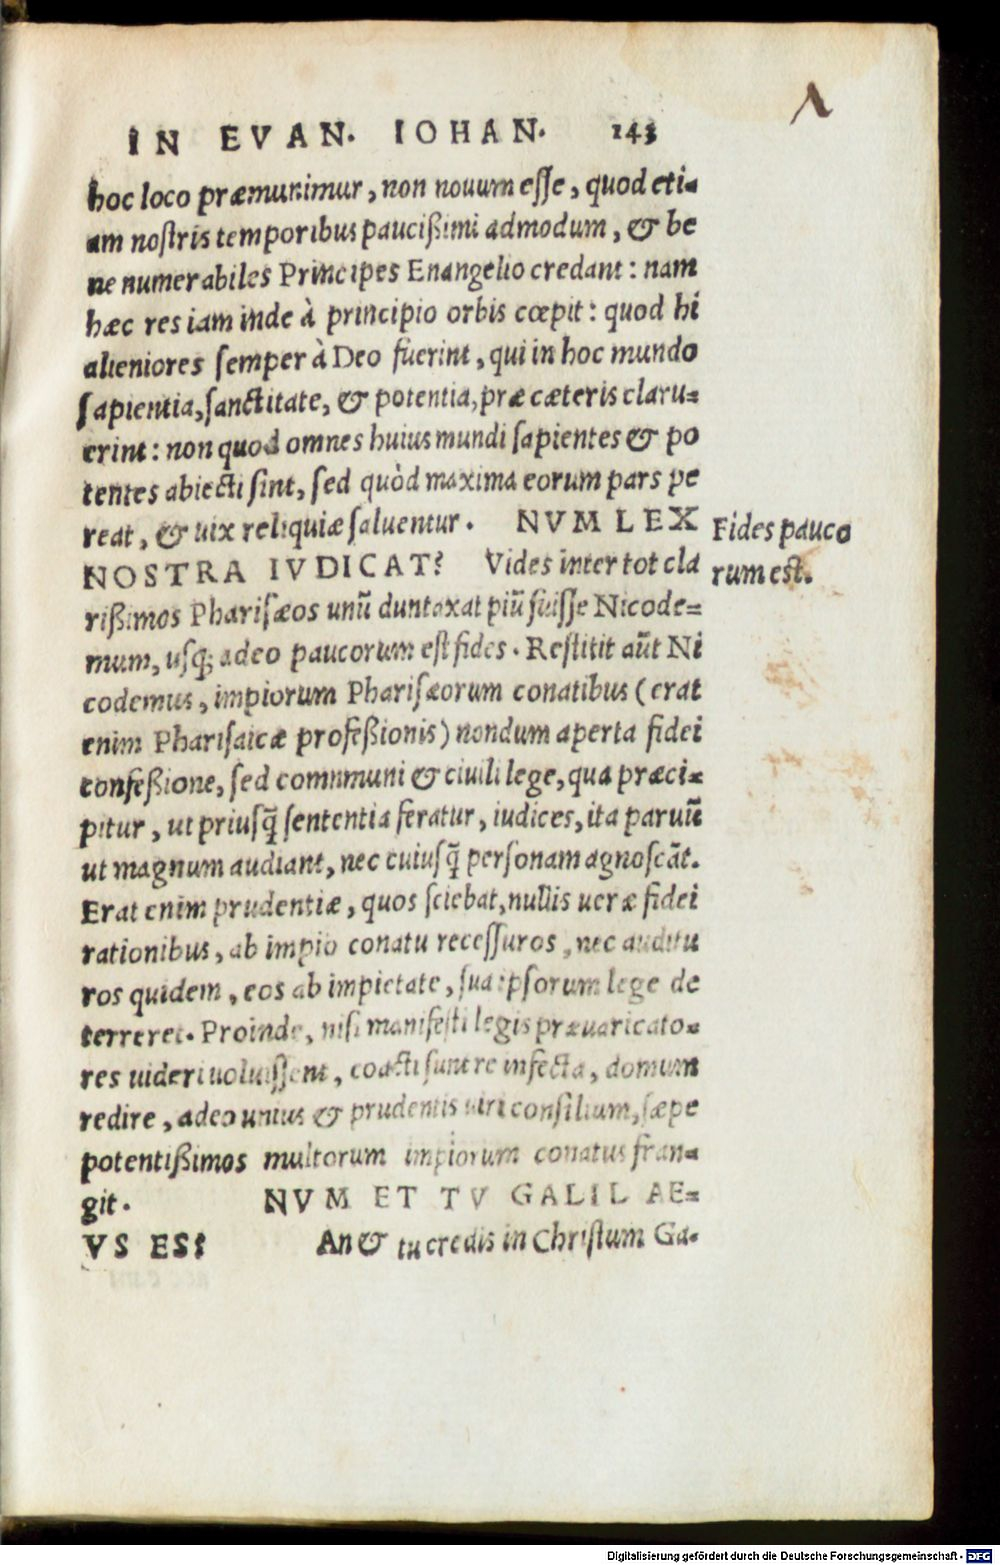 IN EVAN. IOHAN. 143
hoc loco præmunimur, non nouum esse, quod eti-
am nostris temporibus paucißimi admodum, & be
ne numerabiles Principes Enangelio credant: nam
hæc res iam inde à principio orbis cœpit: quod hi
alieniores semper à Deo fuerint, qui in hoc mundo
sapientia, sanctitate, & potentia, præ cæteris claru-
erint: non quod omnes huius mundi sapientes & po
tentes abiecti sint, sed quòd maxima eorum pars pe
reat, & uix reliquiæ saluentur. NVM LEX
Fides pauco
rum est.
NOSTRA IVDICAT? Vides inter tot cla
rißimos Pharisæos unũ duntaxat piũ fuisse Nicode-
mum, usq; adeo paucorum est fides. Restitit aũt Ni
codemus, impiorum Pharisæorum conatibus (erat
enim Pharisaicæ profeßionis) nondum aperta fidei
confeßione, sed commnuni & ciuili lege, qua præci-
pitur, ut priusq̃ sententia feratur, iudices, ita paruũ
ut magnum audiant, nec cuiusq̃ personam agnoscãt.
Erat enim prudentiæ, quos sciebat, nullis ueræ fidei
rationibus, ab impio conatu recessuros, nec auditu
ros quidem, eos ab impietate, sua ipsorum lege de
terreret. Proinde, nisi manifesti legis præuaricato-
res uideri uoluissent, coacti sunt re infecta, domum
redire, adeo unius & prudentis uiri consilium, sæpe
potentißimos multorum impiorum conatus fran-
git. NVM ET TV GALILAE-
VS ES? An & tu credis in Christum Ga-
Digitalisierung gefördert durch die Deutsche Forschungsgemeinschaft - DFG